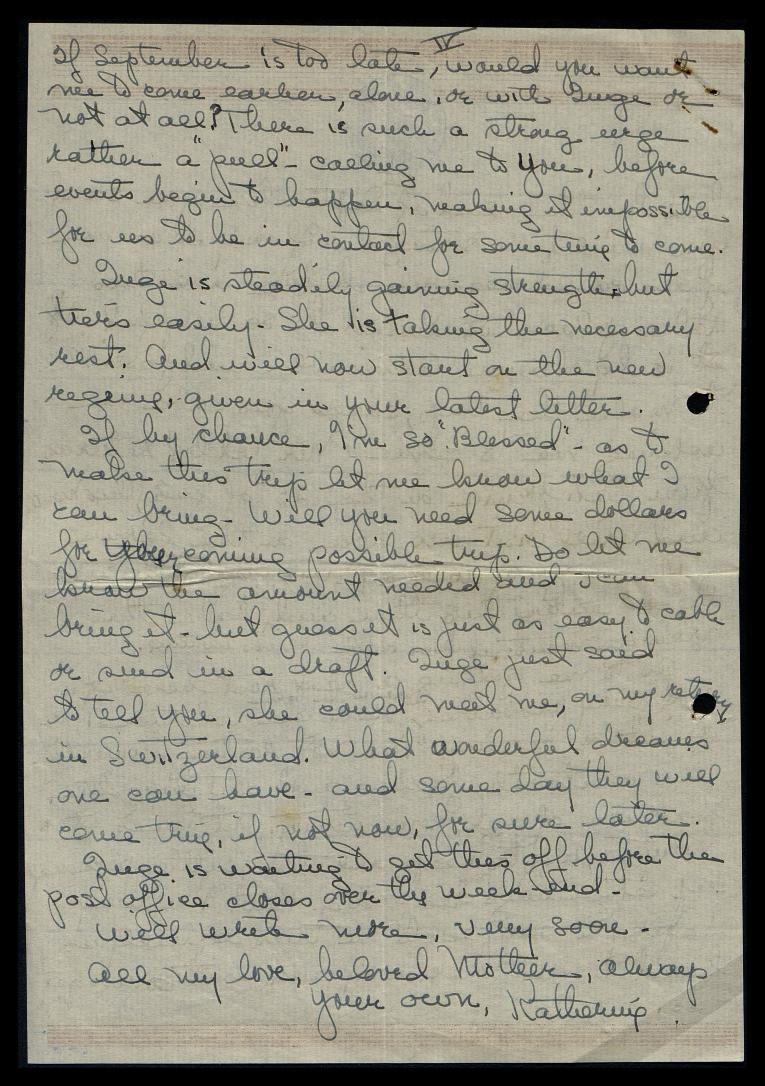 IV
If September is too late, would you want
me to come earlier, alone, or with Inge or
not at all? There is such a strong urge
rather a "pull" - calling me to you, before
events begin to happen, making it impossible
for us to be in contact for some time to come.
Inge is steadily gaining strength, but
tires easily - She is taking the necessary
rest. And will now start on the new
regeine, given in your latest letter.
If by chance, I'm so "Blessed" - as to
make this trip let me know what I
can bring - Will you need some dollars
for your coming possible trip. Do let me
know the amount needed and I can
bring it - but guess it is just as easy to cable
or send in a draft. Inge just said
to tell you, she could meet me, on my return,
in Switzerland. What wonderful dreams
one can have - and some day they will
come true, if not now, for sure later.
Inge is wanting to get this off before the
post office closes over the week-end -
Will write more, very soon -
All my love, beloved Mother, always
your own, Katherine